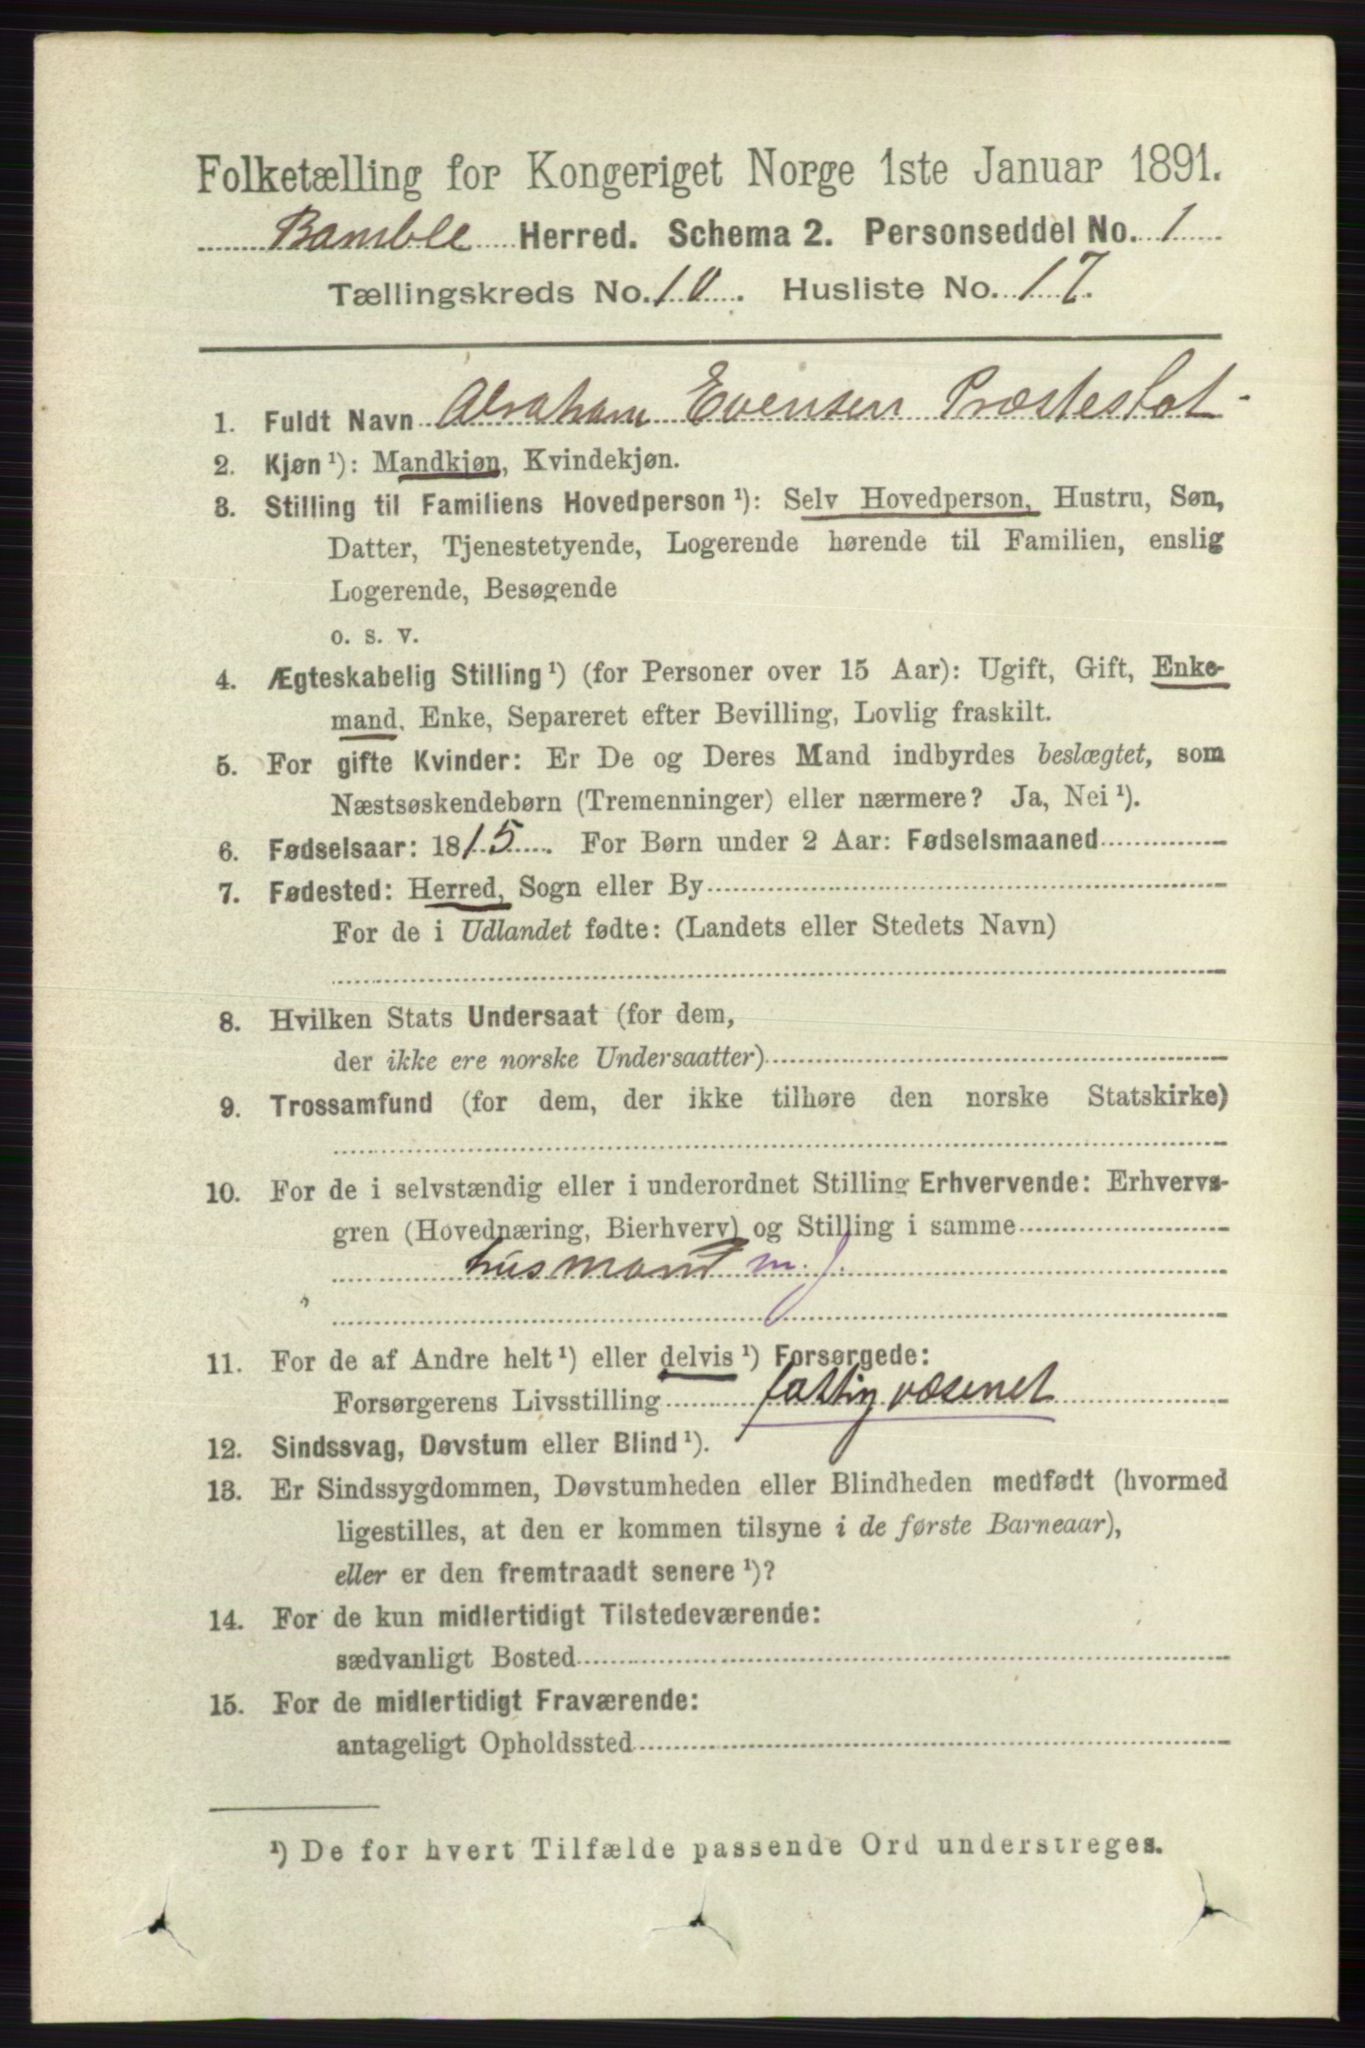 Folketælling for Kongeriget Norge 1ste Januar 1891.
Bamble Herred. Schema 2. Personseddel No. 1
Tællingskreds No. 10. Husliste No. 17.
1. Fuldt Navn Abraham Evensen Præsteslot
2. Kjøn ¹): Mandkjøn, Kvindekjøn.
3. Stilling til Familiens Hovedperson ¹): Selv Hovedperson, Hustru, Søn,
Datter, Tjenestetyende, Logerende hørende til Familien, enslig
Logerende, Besøgende
o. s. v.
4. Ægteskabelig Stilling ¹) (for Personer over 15 Aar): Ugift, Gift, Enke-
mand, Enke, Separeret efter Bevilling, Lovlig fraskilt.
5. For gifte Kvinder: Er De og Deres Mand indbyrdes beslægtet, som
Næstsøskendebørn (Tremenninger) eller nærmere? Ja, Nei ¹).
6. Fødselsaar: 1815. For Børn under 2 Aar: Fødselsmaaned
7. Fødested: Herred, Sogn eller By
For de i Udlandet fødte: (Landets eller Stedets Navn)
8. Hvilken Stats Undersaat (for dem,
der ikke ere norske Undersaatter)
9. Trossamfund (for dem, der ikke tilhøre den norske Statskirke)
10. For de i selvstændig eller i underordnet Stilling Erhvervende: Erhvervs-
gren (Hovednæring, Bierhverv) og Stilling i samme
husmand m. j.
11. For de af Andre helt ¹) eller delvis ¹) Forsørgede:
Forsørgerens Livsstilling fattigvæsenet
12. Sindssvag, Døvstum eller Blind ¹).
13. Er Sindssygdommen, Døvstumheden eller Blindheden medfødt (hvormed
ligestilles, at den er kommen tilsyne i de første Barneaar),
eller er den fremtraadt senere ¹)?
14. For de kun midlertidigt Tilstedeværende:
sædvanligt Bosted
15. For de midlertidigt Fraværende:
antageligt Opholdssted
¹) De for hvert Tilfælde passende Ord understreges.